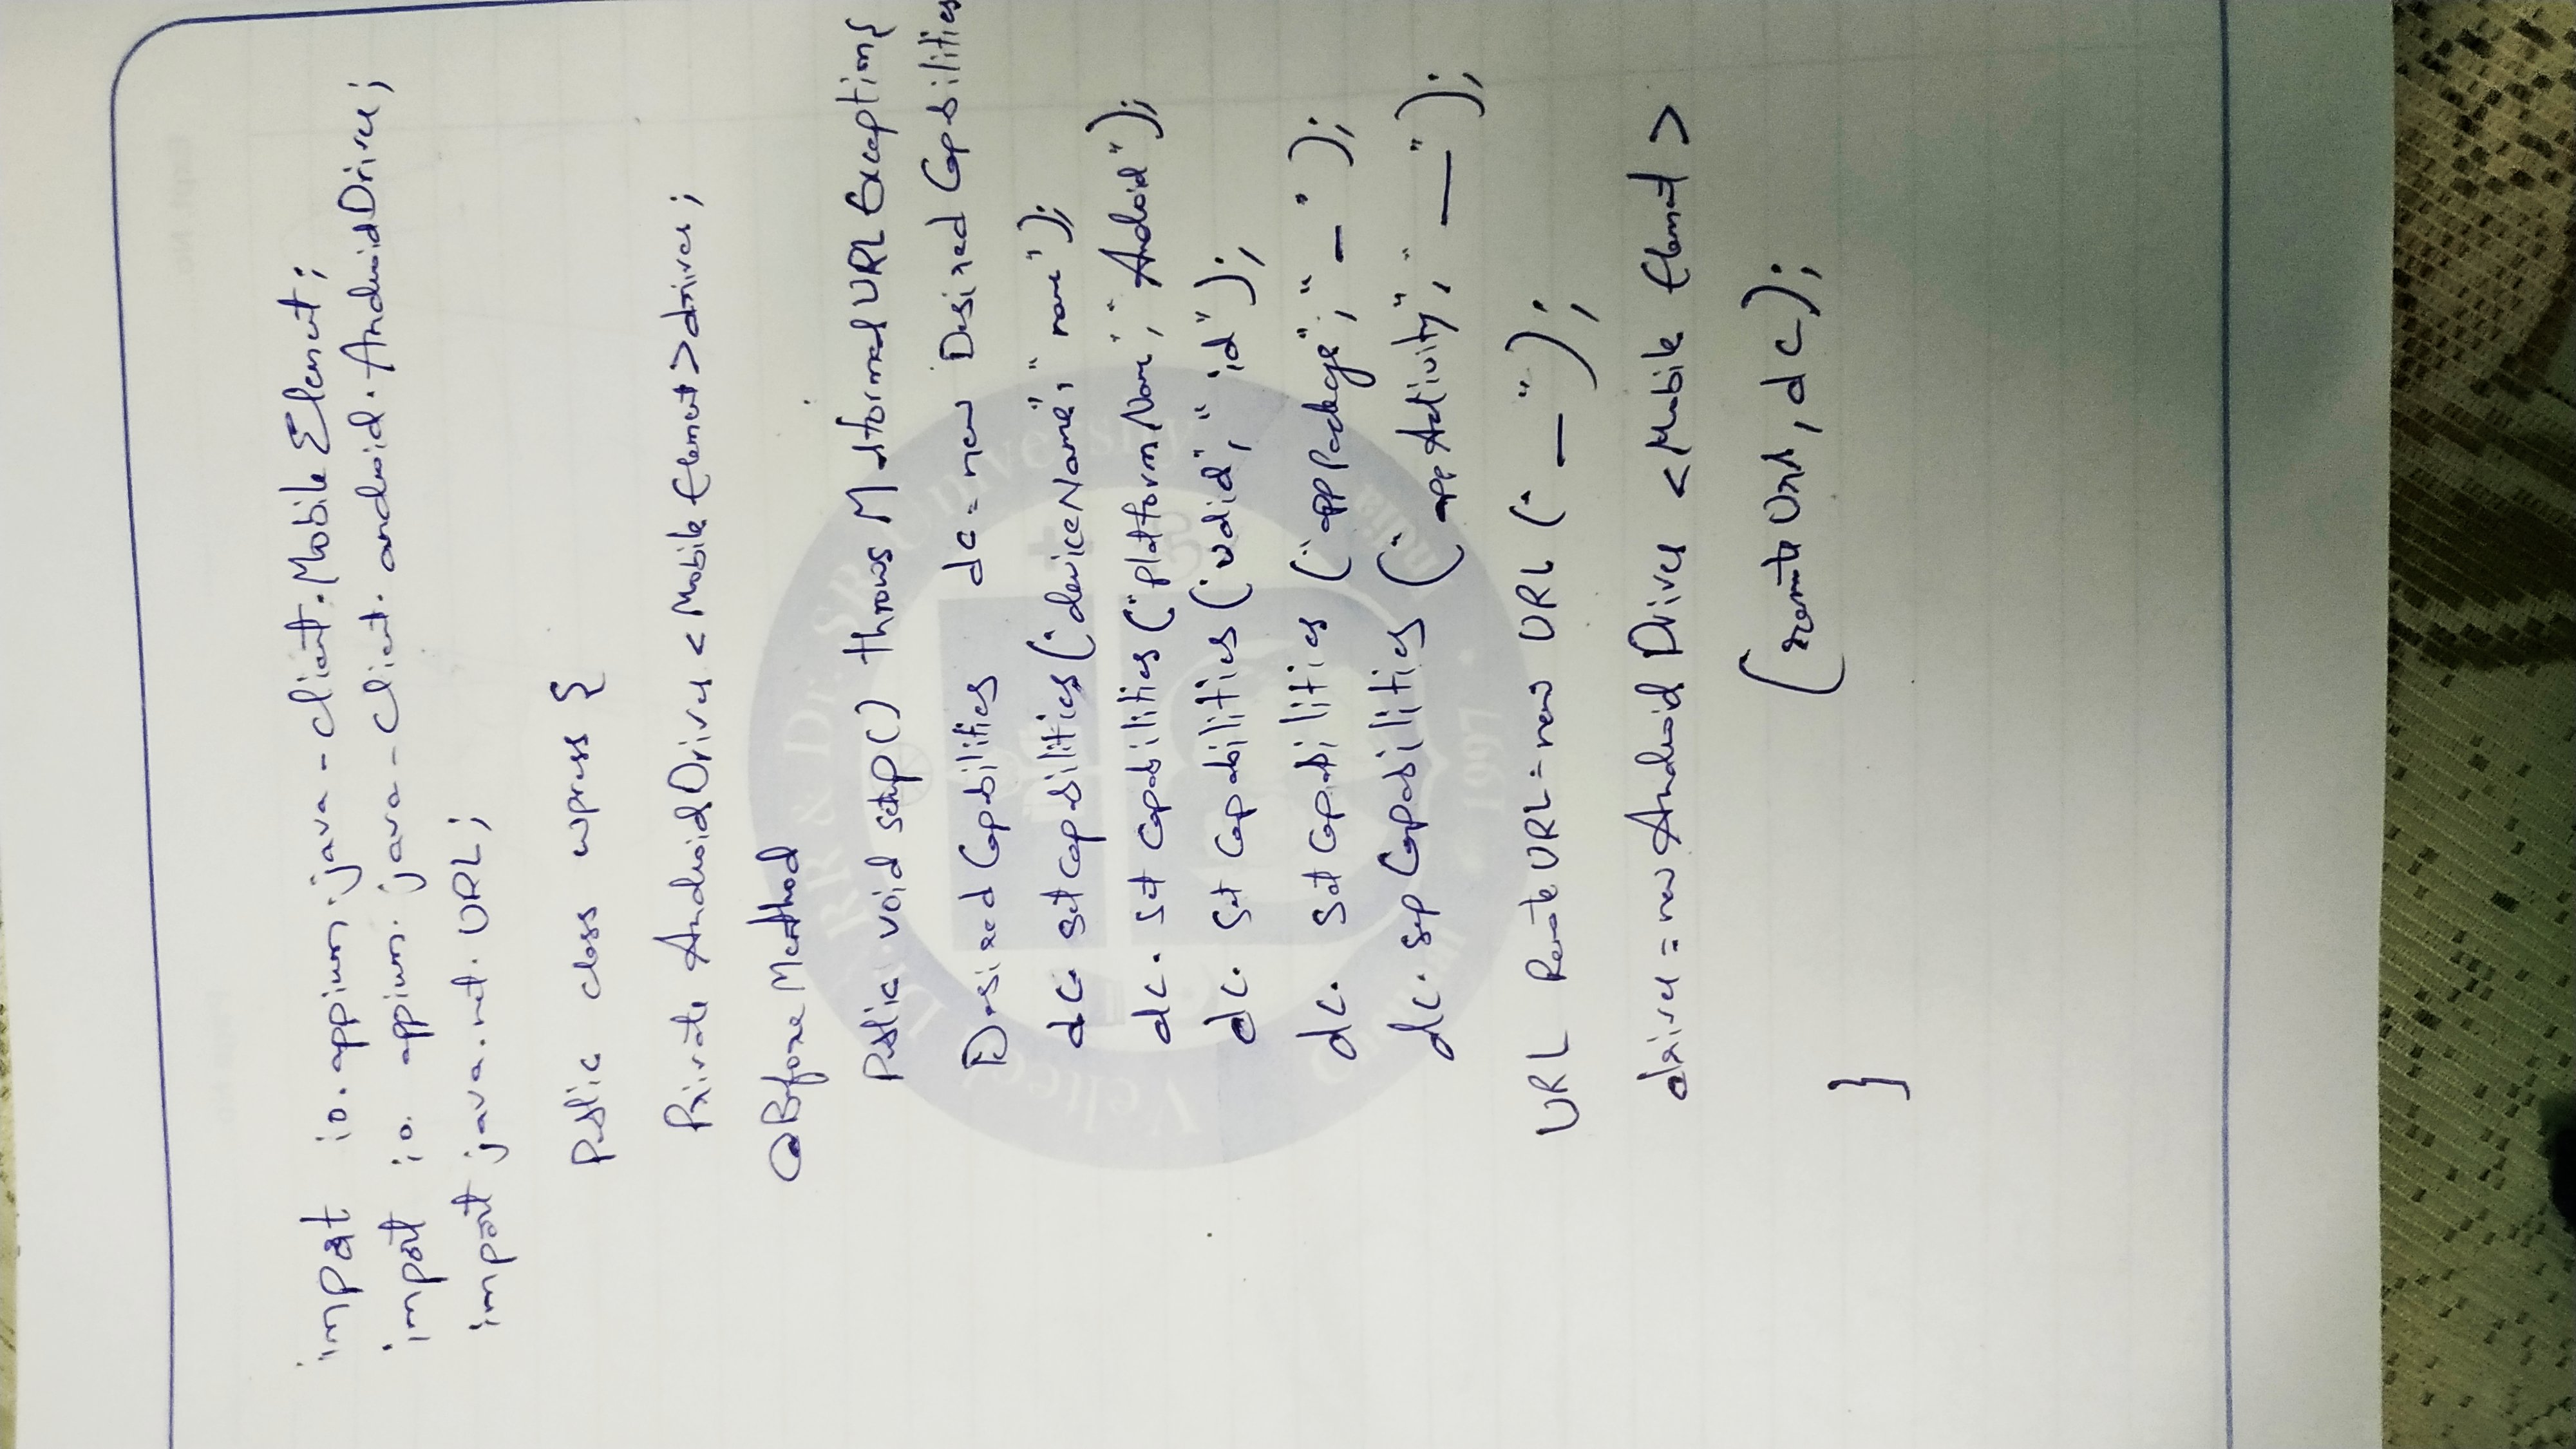 import io.appium.java-client.MobileElement;
import io.appium.java-client.android.AndroidDriver;
import java.net.URL;
Public class wpress {
Private AndroidDriver <MobileElement> driver;
@Before Menthod
Public void setup() throws Malformed URL Exception{
Desired Capabilities dc = new Desired Capabilities
dc. set capabilities ("deviceName", "name");
dc. Set Capabilities ("platformName", "Android");
dc. Set Capabilities ("udid", " id");
dc. Set Capabilities ("appPackage", "_" );
dc. sep Capabilities ("appActivity", "__");
URL RemoteURL = new URL ("_");
driver = new Android Driver <Mobile Element >
(remote Url, dc);
}
Veltech Dr. RR & Dr. SR University
Chennai India
1997
Expt. No.
Page No.